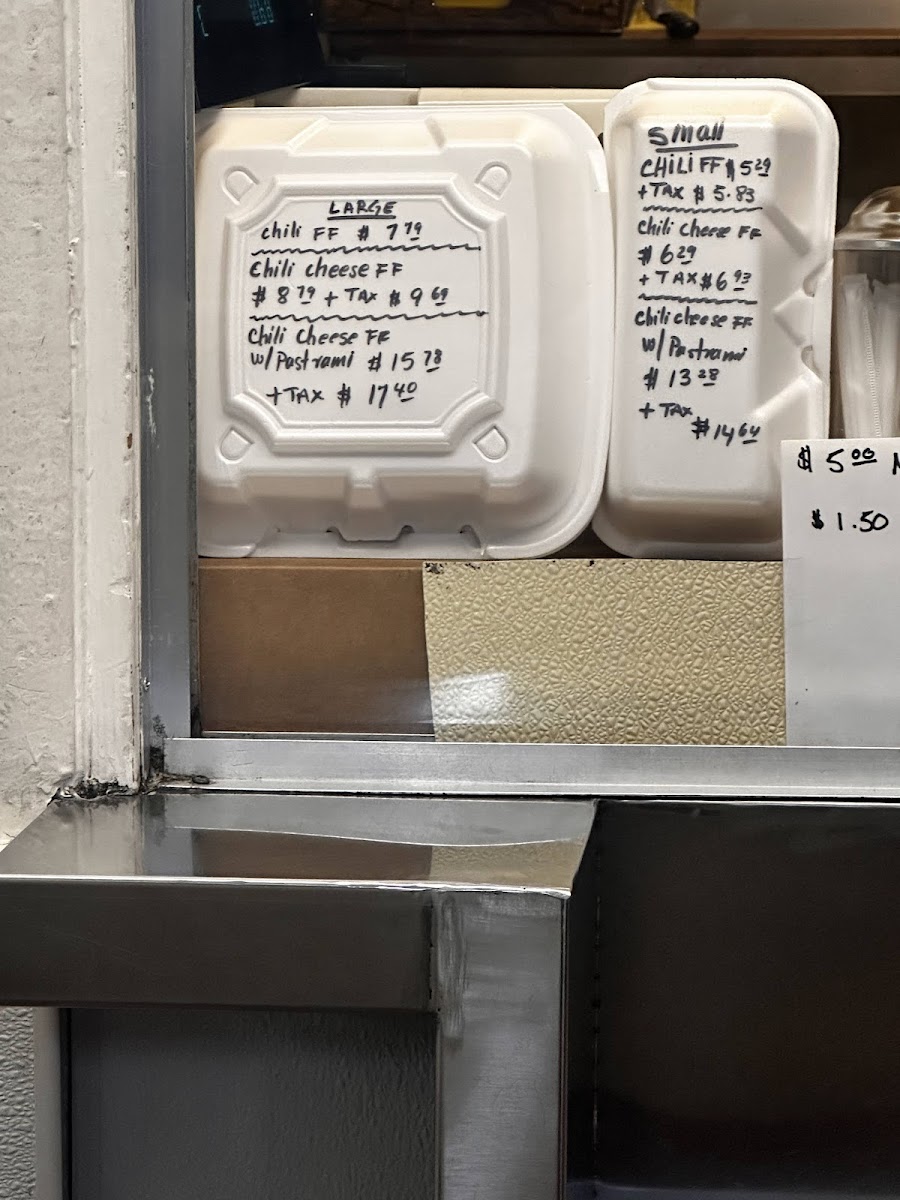 LARGE
chili FF $ 7 79
Chili cheese FF
$ 8 79 + TAX $ 9 69
Chili Cheese FF
w/Pastrami $ 15 78
+TAX $ 17 40
Small
CHILI FF $ 5 29
+TAX $ 5.83
Chili Cheese FF
$ 6 29
+ TAX $ 6 93
Chili cheese FF
w/Pastrami
$ 13 28
+ TAX
$ 14 64
$ 5 00
$ 1.50